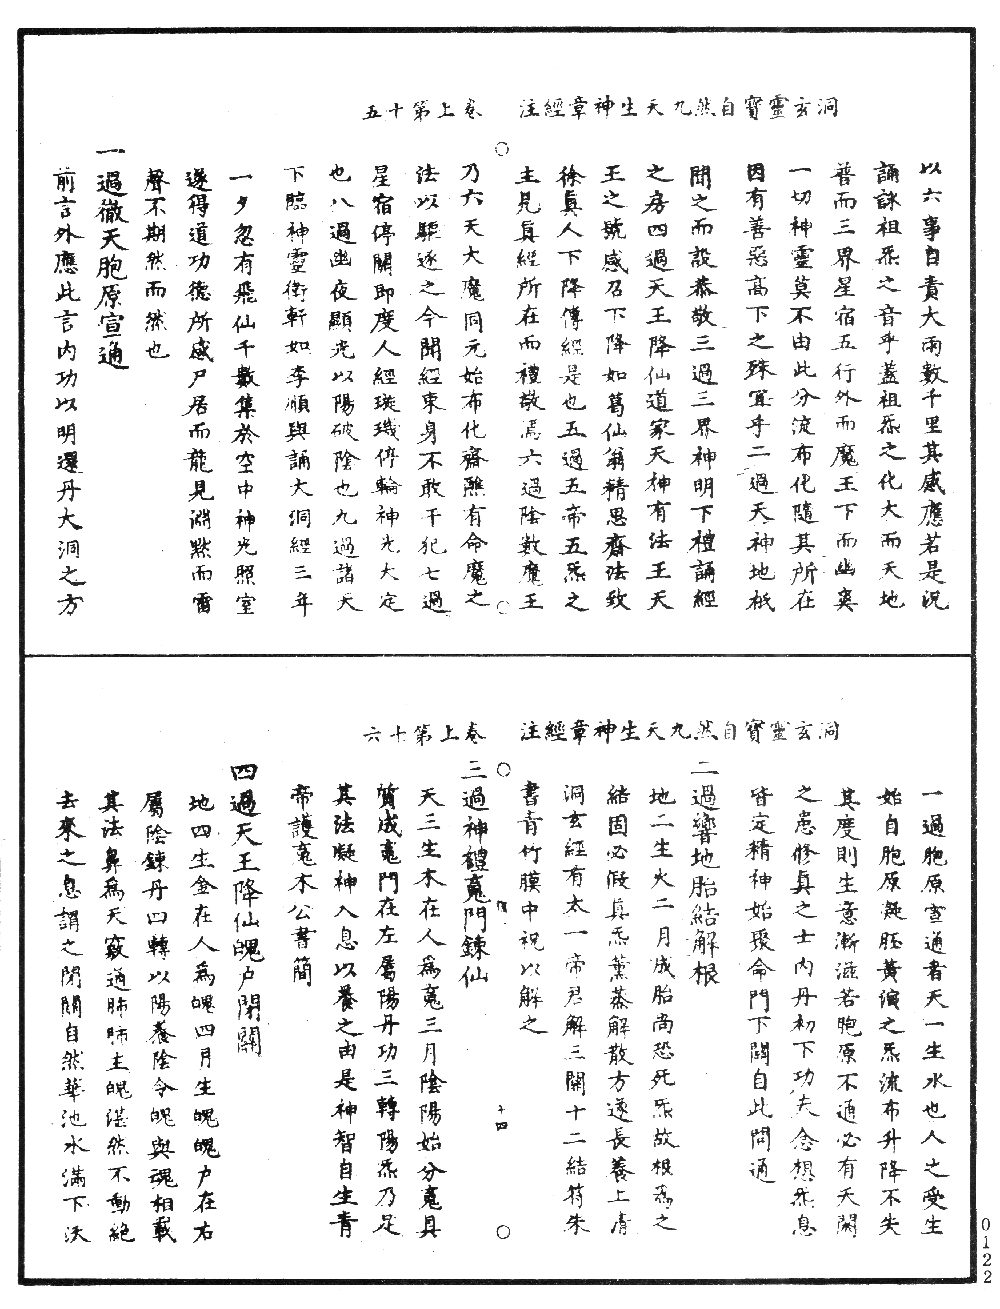 洞玄靈寶自然九天生神章經注　卷上第十五
以六事自責大雨數千里其感應若是況
誦詠祖炁之音乎蓋祖炁之化大而天地
普而三界星宿五行外而魔王下而幽爽
一切神靈莫不由此分流布化隨其所在
因有善惡高下之殊宜乎二過天神地祇
聞之而設恭敬三過三界神明下禮誦經
之房四過天王降仙道家天神有法王天
王之號感召下降如葛仙翁精思齋法致
徐真人下降傳經是也五過五帝五炁之
主見真經所在而禮敬焉六過陰數魔王
乃六天大魔同元始布化齋醮有命魔之
法以驅逐之今聞經束身不敢干犯七過
星宿停關即度人經璇璣停輪神光大定
也八過幽夜顯光以陽破陰也九過諸天
下臨神靈衛軒如李順興誦大洞經三年
一夕忽有飛仙千數集於空中神光照室
遂得道功德所感尸居而龍見淵默而雷
聲不期然而然也
一過徹天胞原宣通
前言外應此言內功以明還丹大洞之方
洞玄靈寶自然九天生神章經注　卷上第十六
一過胞原宣通者天一生水也人之受生
始自胞原凝胚黃演之炁流布升降不失
其度則生意漸滋若胞原不通必有夭閼
之患修真之士內丹初下功夫念想炁息
皆定精神始聚命門下關自此開通
二過響地胎結解根
地二生火二月成胎尚恐死炁故根為之
結固必假真炁薰蒸解散方遂長養上清
洞玄經有太一帝君解三關十二結符朱
書青竹膜中祝以解之
三過神禮䰟門鍊仙
天三生木在人為䰟三月陰陽始分䰟具
質成䰟門在左屬陽丹功三轉陽炁乃足
其法凝神入息以養之由是神智自生青
帝護䰟木公書簡
四過天王降仙魄戶閉關
地四生金在人為魄四月生魄魄戶在右
屬陰鍊丹四轉以陽養陰令魄與魂相載
其法鼻為天竅通肺肺主魄湛然不動絕
去來之息謂之閉關自然華池水滿下沃
十四
0122